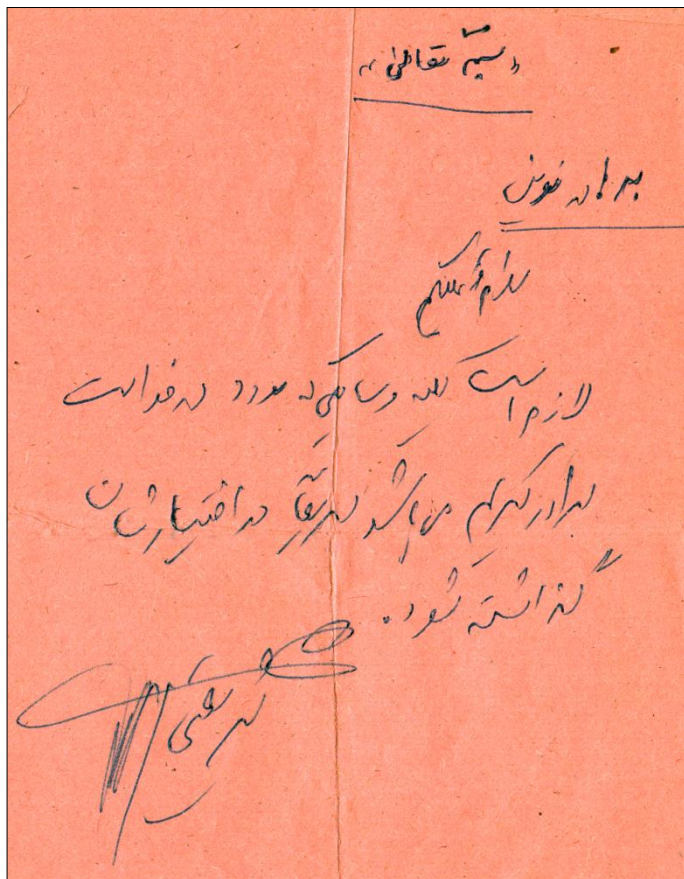 «بسمه تعالی»
برادر
سلام علیکم
لازم است کلیه وسایلی که مورد درخواست
برادر میباشد سریعاً در اختیارشان
گذاشته شود.